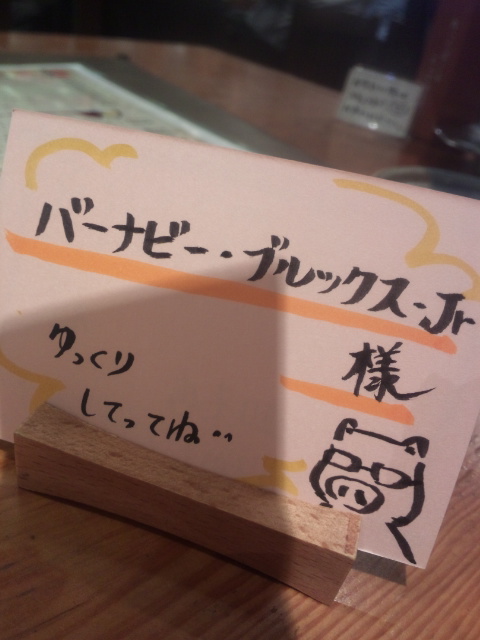 バーナビー・ブルックス・Jr
様
ゆっくり
してってね‥